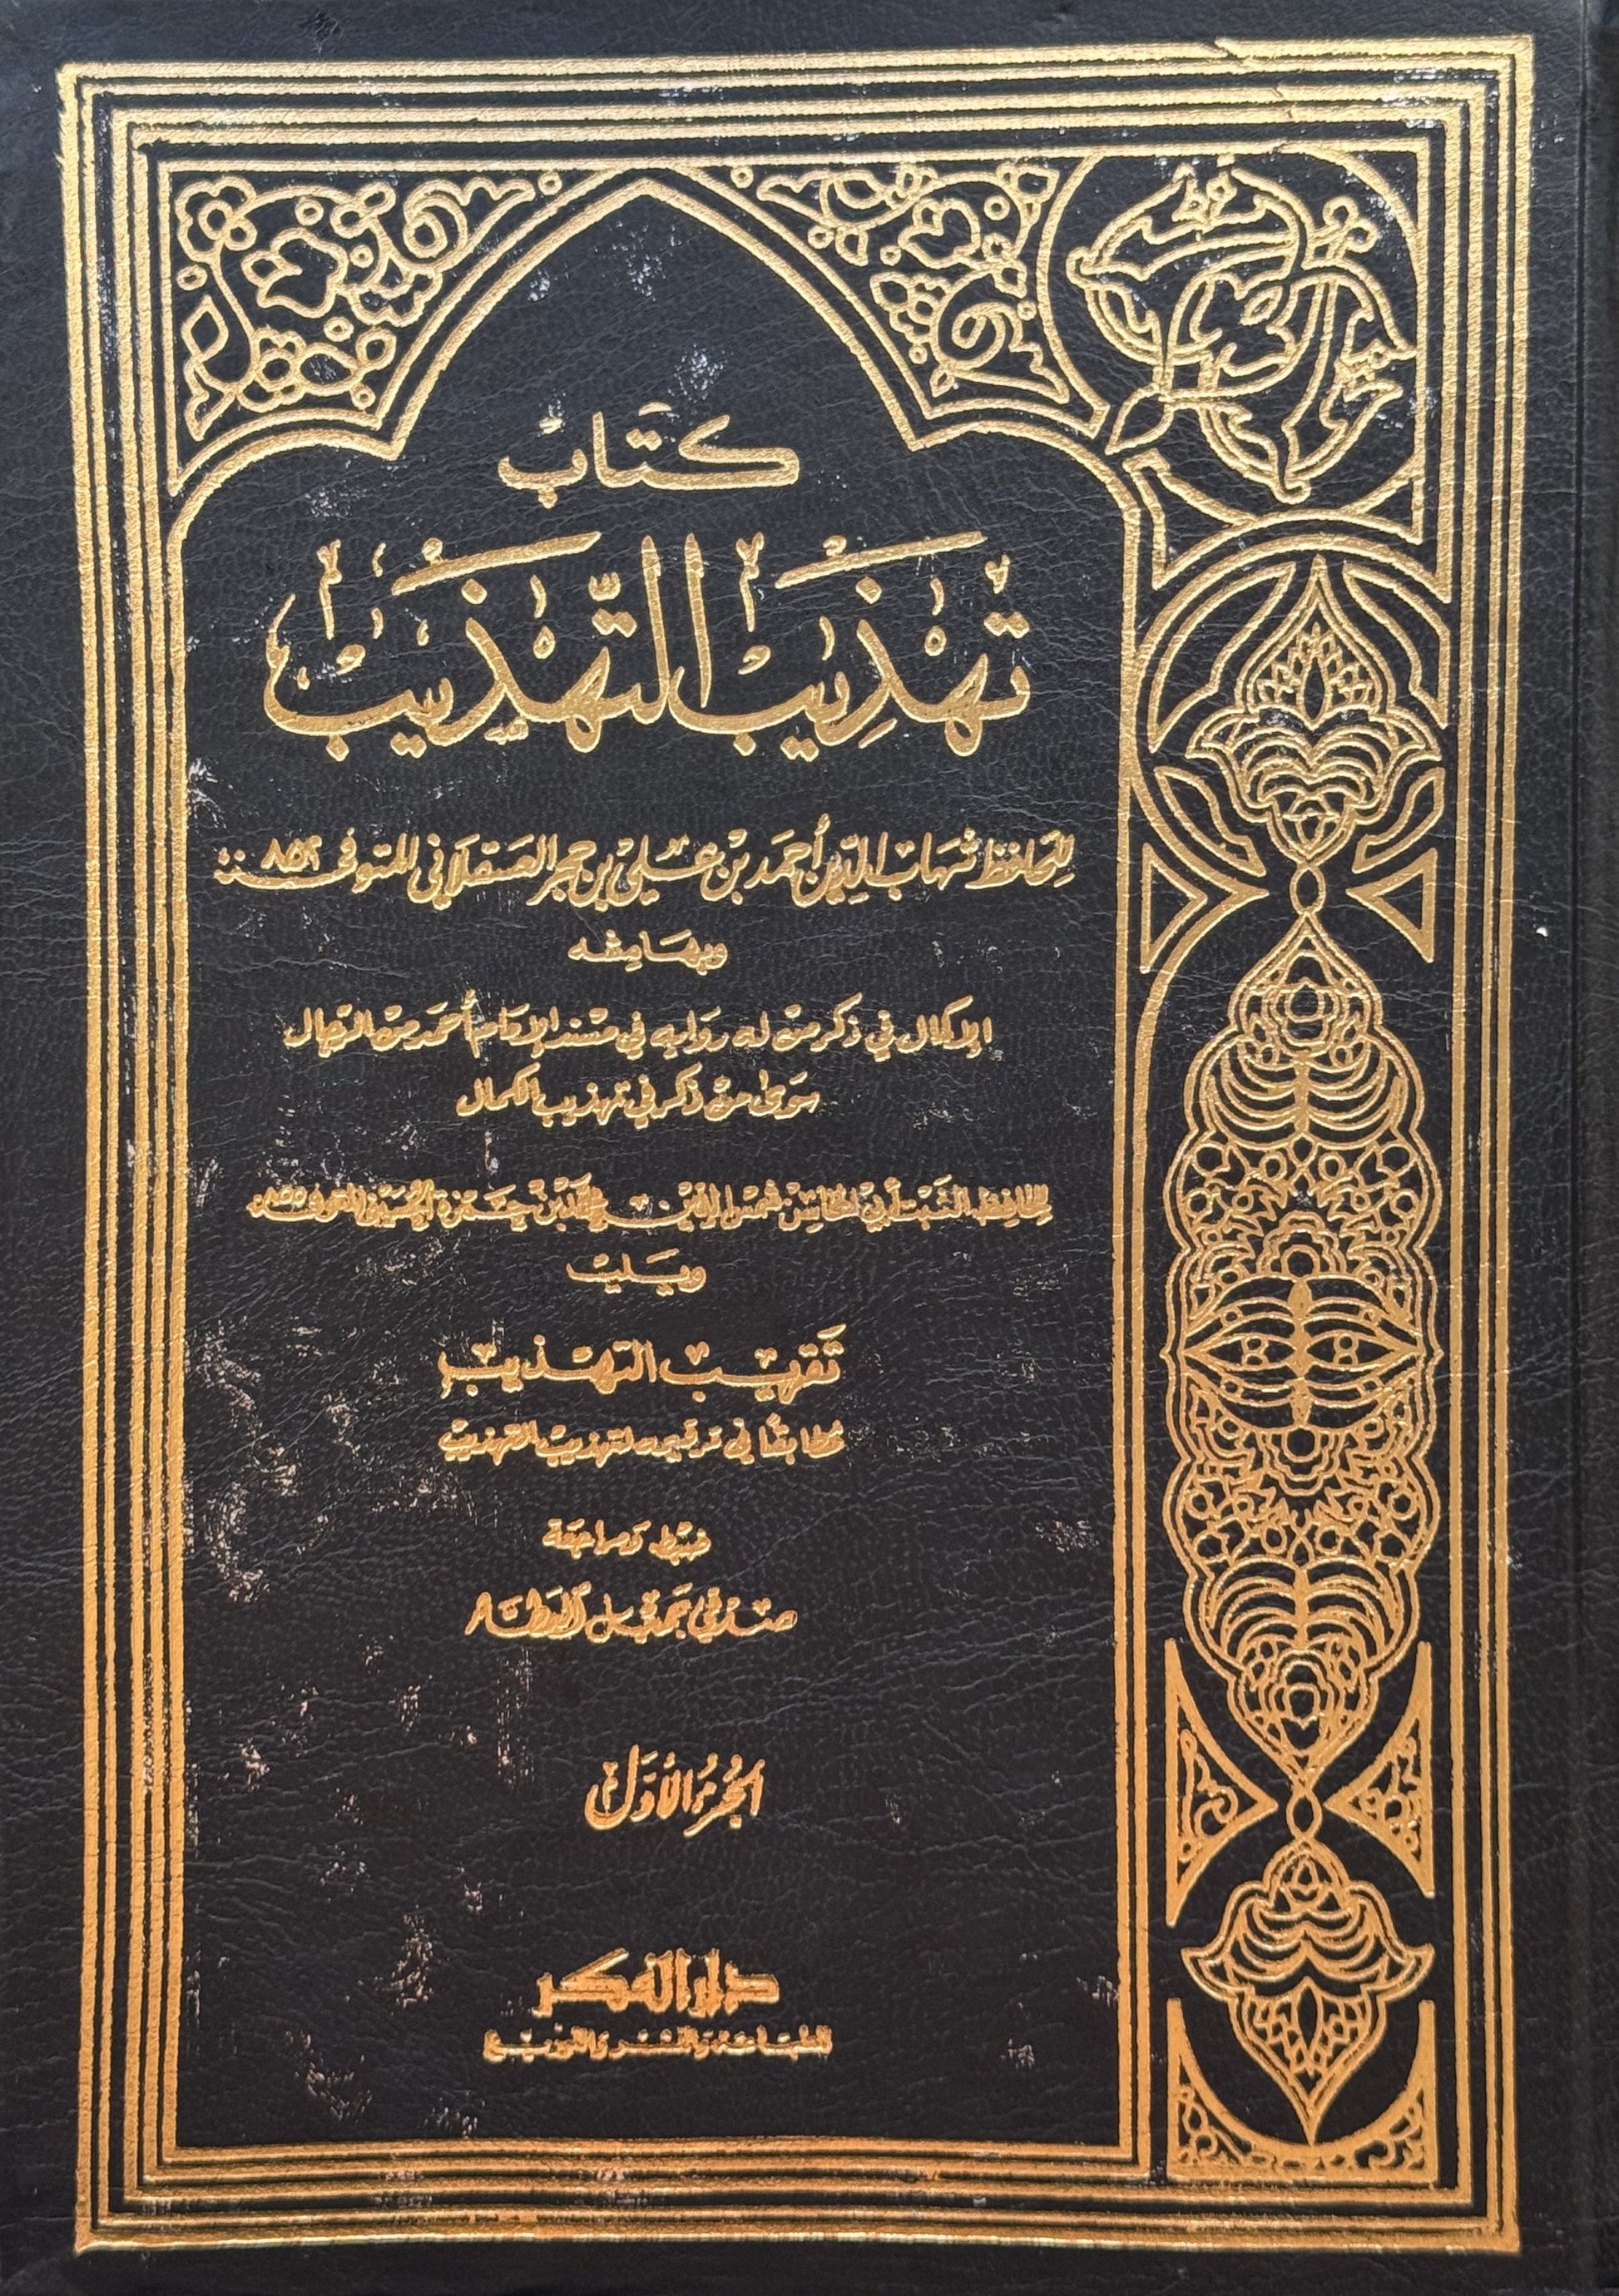 كتاب
تهذيب التهذيب
للحافظ شهاب الدين أحمد بن علي بن حجر العسقلاني المتوفى ٨٥٢
وبهامشه
الإكمال في ذكر من له رواية في مسند الإمام أحمد من الرجال
سوى من ذكر في تهذيب الكمال
للحافظ الثبت أبي المحاسن شمس الدين محمد بن حمزة الحسيني المتوفى
ويليه
تقريب التهذيب
مطابقًا في ترقيمه لتهذيب التهذيب
ضبط ومراجعة
صدقي جميل العطار
الجزء الأول
دار الفكر
للطباعة والنشر والتوزيع